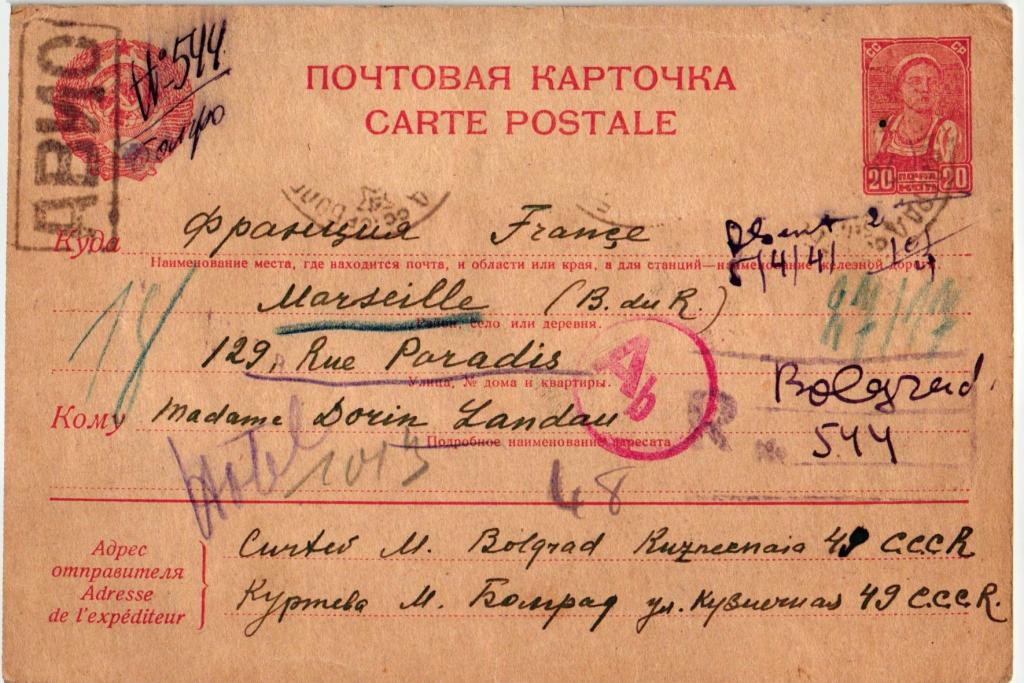 АВИО
№544
ПОЧТОВАЯ КАРТОЧКА
CARTE POSTALE
СС СР
20 ПОЧТА 20
Куда Франция France
Наименование места, где находится почта, и области или края, а для станций—наименование железной дороги.
Absent 2
5/4/41
Marseille (B. du R.)
Район, село или деревня.
18
129, Rue Paradis
Улица, № дома и квартиры.
Ab
R
Bolgrad.
№ 544
Кому Madame Dorin Landau
Подробное наименование адресата
Hotel 1013 48
Адрес отправителя
Adresse de l'expéditeur
Curtev M. Bolgrad Kuznecnaia 49 C.C.C.R
Куртева М. Болград ул. Кузнечная 49 С.С.С.R.